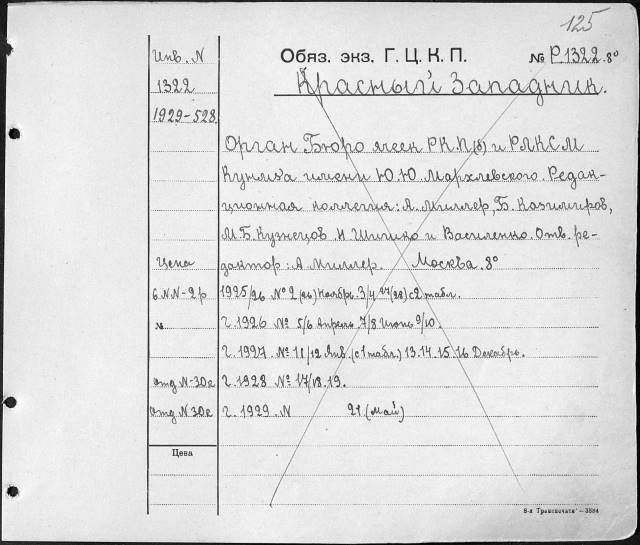 125
Инв. N Обяз. экз. Г. Ц. К. П. № Р1322. 8°
1322 Красный Западник.
1929-528.
Орган Бюро ячеек РКП(б) и РЛКСМ
Кунмза имени Ю Ю. Мархлевского. Редак-
ционная коллегия: А. Миллер, Б. Казимиров,
М. Б. Кузнецов, И Шипико и Василенко. Отв. ре-
Цена дактор: А. Миллер. Москва. 8°
6 N N - 2 р 1925/26 № 2 (26) Ноябрь. 3/4 27/(28) с 2 табл.
№ Г. 1926 № 5/6 Апрель 7/8 Июнь 9/10.
Г. 1927 № 11/12 Янв. (с 1 табл.) 13. 14. 15. 16 Декабрь.
отд N-30к Г. 1928 № 17/18. 19.
Отд N 30к г. 1929. N 21 (май)
Цена
8-я „Транспечати" — 3584